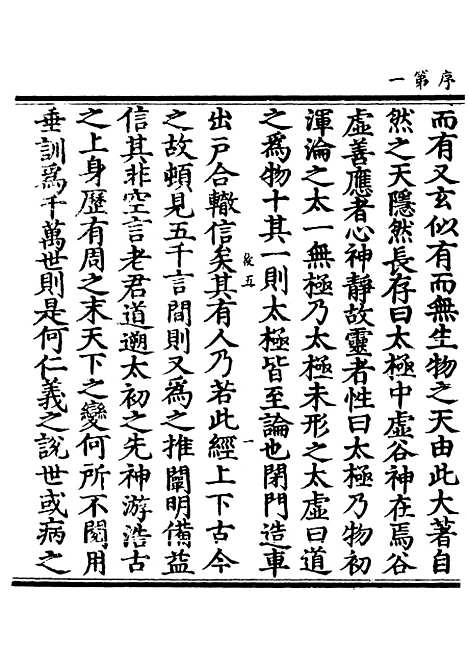 序第一
而有又玄似有而無生物之天由此大著自
然之天隱然長存曰太極中虛谷神在焉谷
虛善應者心神靜故靈者性曰太極乃物初
渾淪之太一無極乃太極未形之太虛曰道
之爲物十其一則太極皆至論也閉門造車
五
一
出戸合轍信矣其有人乃若此經上下古今
之故頓見五千言間則又爲之推闡明備益
信其非空言老君道遡太初之先神游浩古
之上身歷有周之末天下之變何所不閱用
垂訓爲千萬世則是何仁義之說世或病之